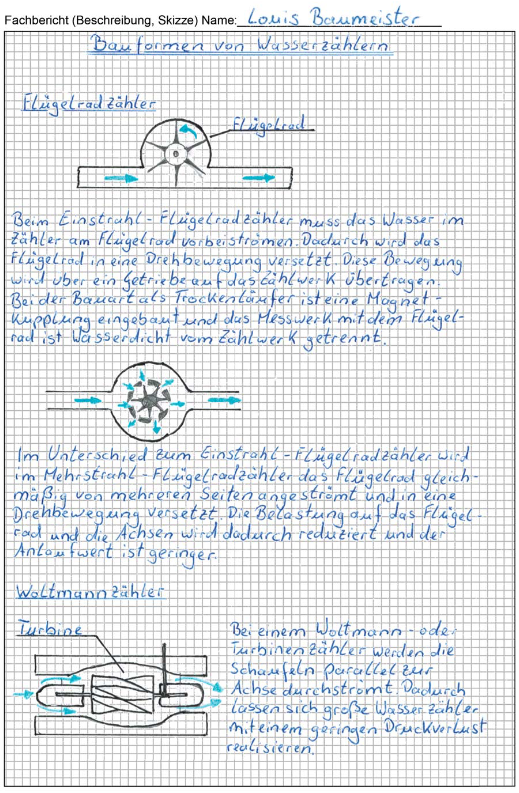 Fachbericht (Beschreibung, Skizze) Name: Louis Baumeister
Bauformen von Wasserzählern
Flügelradzähler
Flügelrad
Beim Einstrahl-Flügelradzähler muss das Wasser im
Zähler am Flügelrad vorbeiströmen. Dadurch wird das
Flügelrad in eine Drehbewegung versetzt. Diese Bewegung
wird über ein Getriebe auf das Zählwerk übertragen.
Bei der Bauart als Trockenläufer ist eine Magnet-
Kupplung eingebaut und das Messwerk mit dem Flügel-
rad ist Wasserdicht vom Zählwerk getrennt.
Im Unterschied zum Einstrahl-Flügelradzähler wird
im Mehrstrahl-Flügelradzähler das Flügelrad gleich-
mäßig von mehreren Seiten angeströmt und in eine
Drehbewegung versetzt. Die Belastung auf das Flügel-
rad und die Achsen wird dadurch reduziert und der
Anlaufwert ist geringer.
Woltmannzähler
Turbine
Bei einem Woltmann- oder
Turbinenzähler werden die
Schaufeln parallel zur
Achse durchströmt. Dadurch
lassen sich große Wasserzähler
mit einem geringen Druckverlust
realisieren.